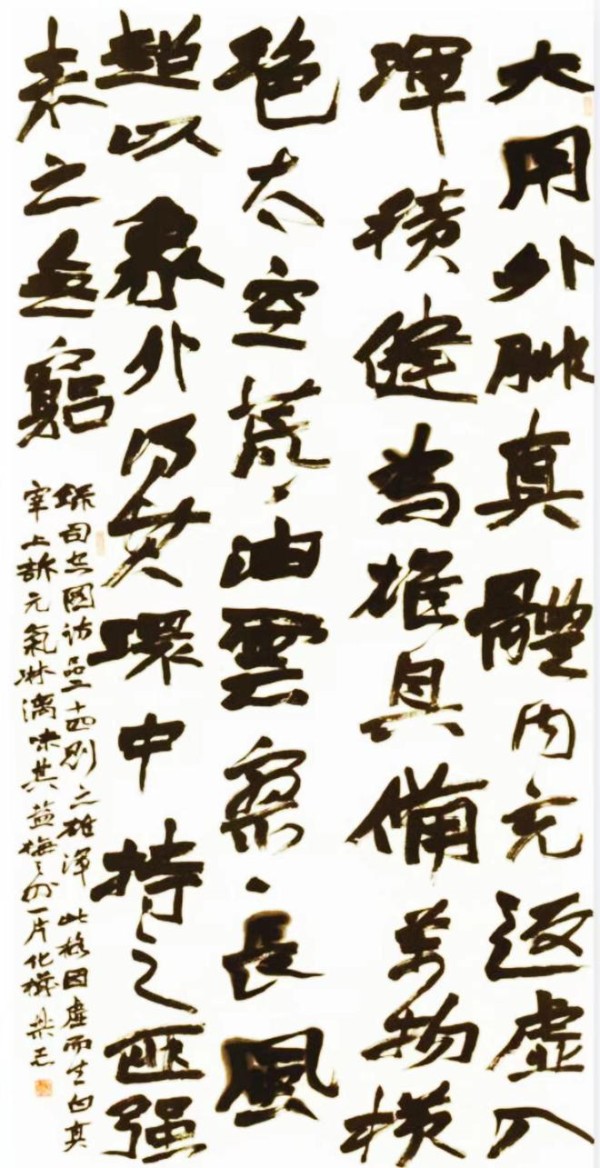 大用外腓真體内充返虚入
渾積健為雄具備萬物横
絶太空荒々油雲寥々長風
超以象外得其環中持之匪强
来之無窮
録司空圖詩品二十四則之雄渾 此格因虚而生白真
宰上訴元氣淋漓味其鹽梅之外一片化機